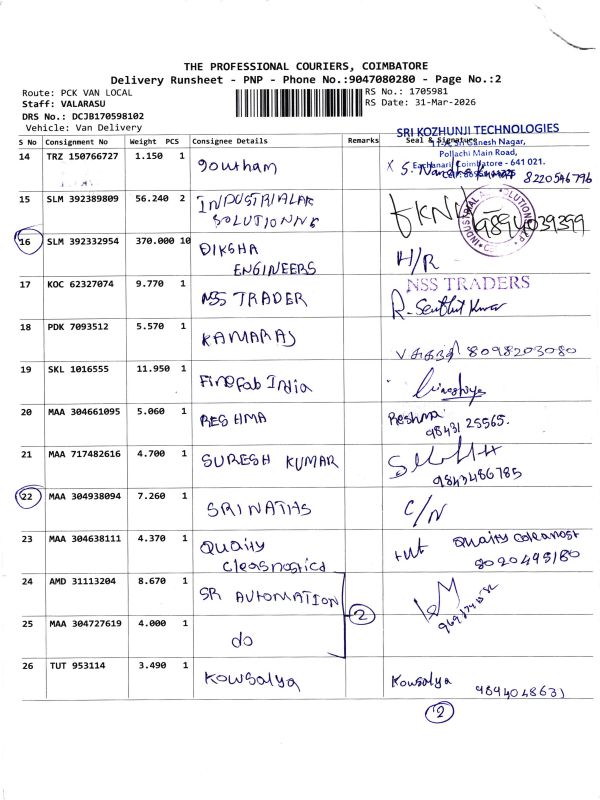 THE PROFESSIONAL COURIERS, COIMBATORE
Delivery Runsheet - PNP - Phone No.:9047080280 - Page No.:2
Route: PCK VAN LOCAL
RS No.: 1705981
Staff: VALARASU
RS Date: 31-Mar-2026
DRS No.: DCJB170598102
Vehicle: Van Delivery
SRI KOZHUNJI TECHNOLOGIES
Ganesh Nagar,
Pollachi Main Road,
Eachanari, Coimbatore - 641 021.
S No Consignment No Weight PCS Consignee Details Remarks Seal & Signature
14 TRZ 150766727 1.150 1 goutham X S. 8220546796
15 SLM 392389809 56.240 2 INDUSTRIALAK
SOLUTIONNS
9894039399
16 SLM 392332954 370.000 10 DIKSHA
ENGINEERS H/R
17 KOC 62327074 9.770 1 NSS TRADER NSS TRADERS
R. Senthil Kumar
18 PDK 7093512 5.570 1 KAMARAJ 8098203080
19 SKL 1016555 11.950 1 Finefab India
20 MAA 304661095 5.060 1 RESHMA Reshma
9843125565.
21 MAA 717482616 4.700 1 SURESH KUMAR
9843486785
22 MAA 304938094 7.260 1 SRINATHS C/N
23 MAA 304638111 4.370 1 Quaity
cleasnostics
8020495180
24 AMD 31113204 8.670 1 SR AUTOMATION
2
25 MAA 304727619 4.000 1 do
26 TUT 953114 3.490 1 Kowsalya Kowsalya 9894048631
2